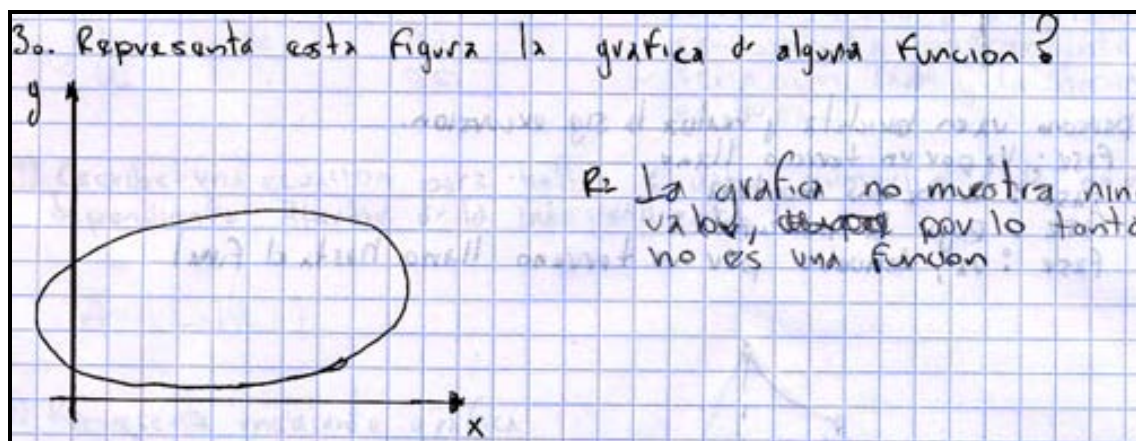 3o. Representa esta figura la grafica d alguna funcion?
y
R= La grafica no muestra nin
valor, por lo tanto
no es una funcion.
x